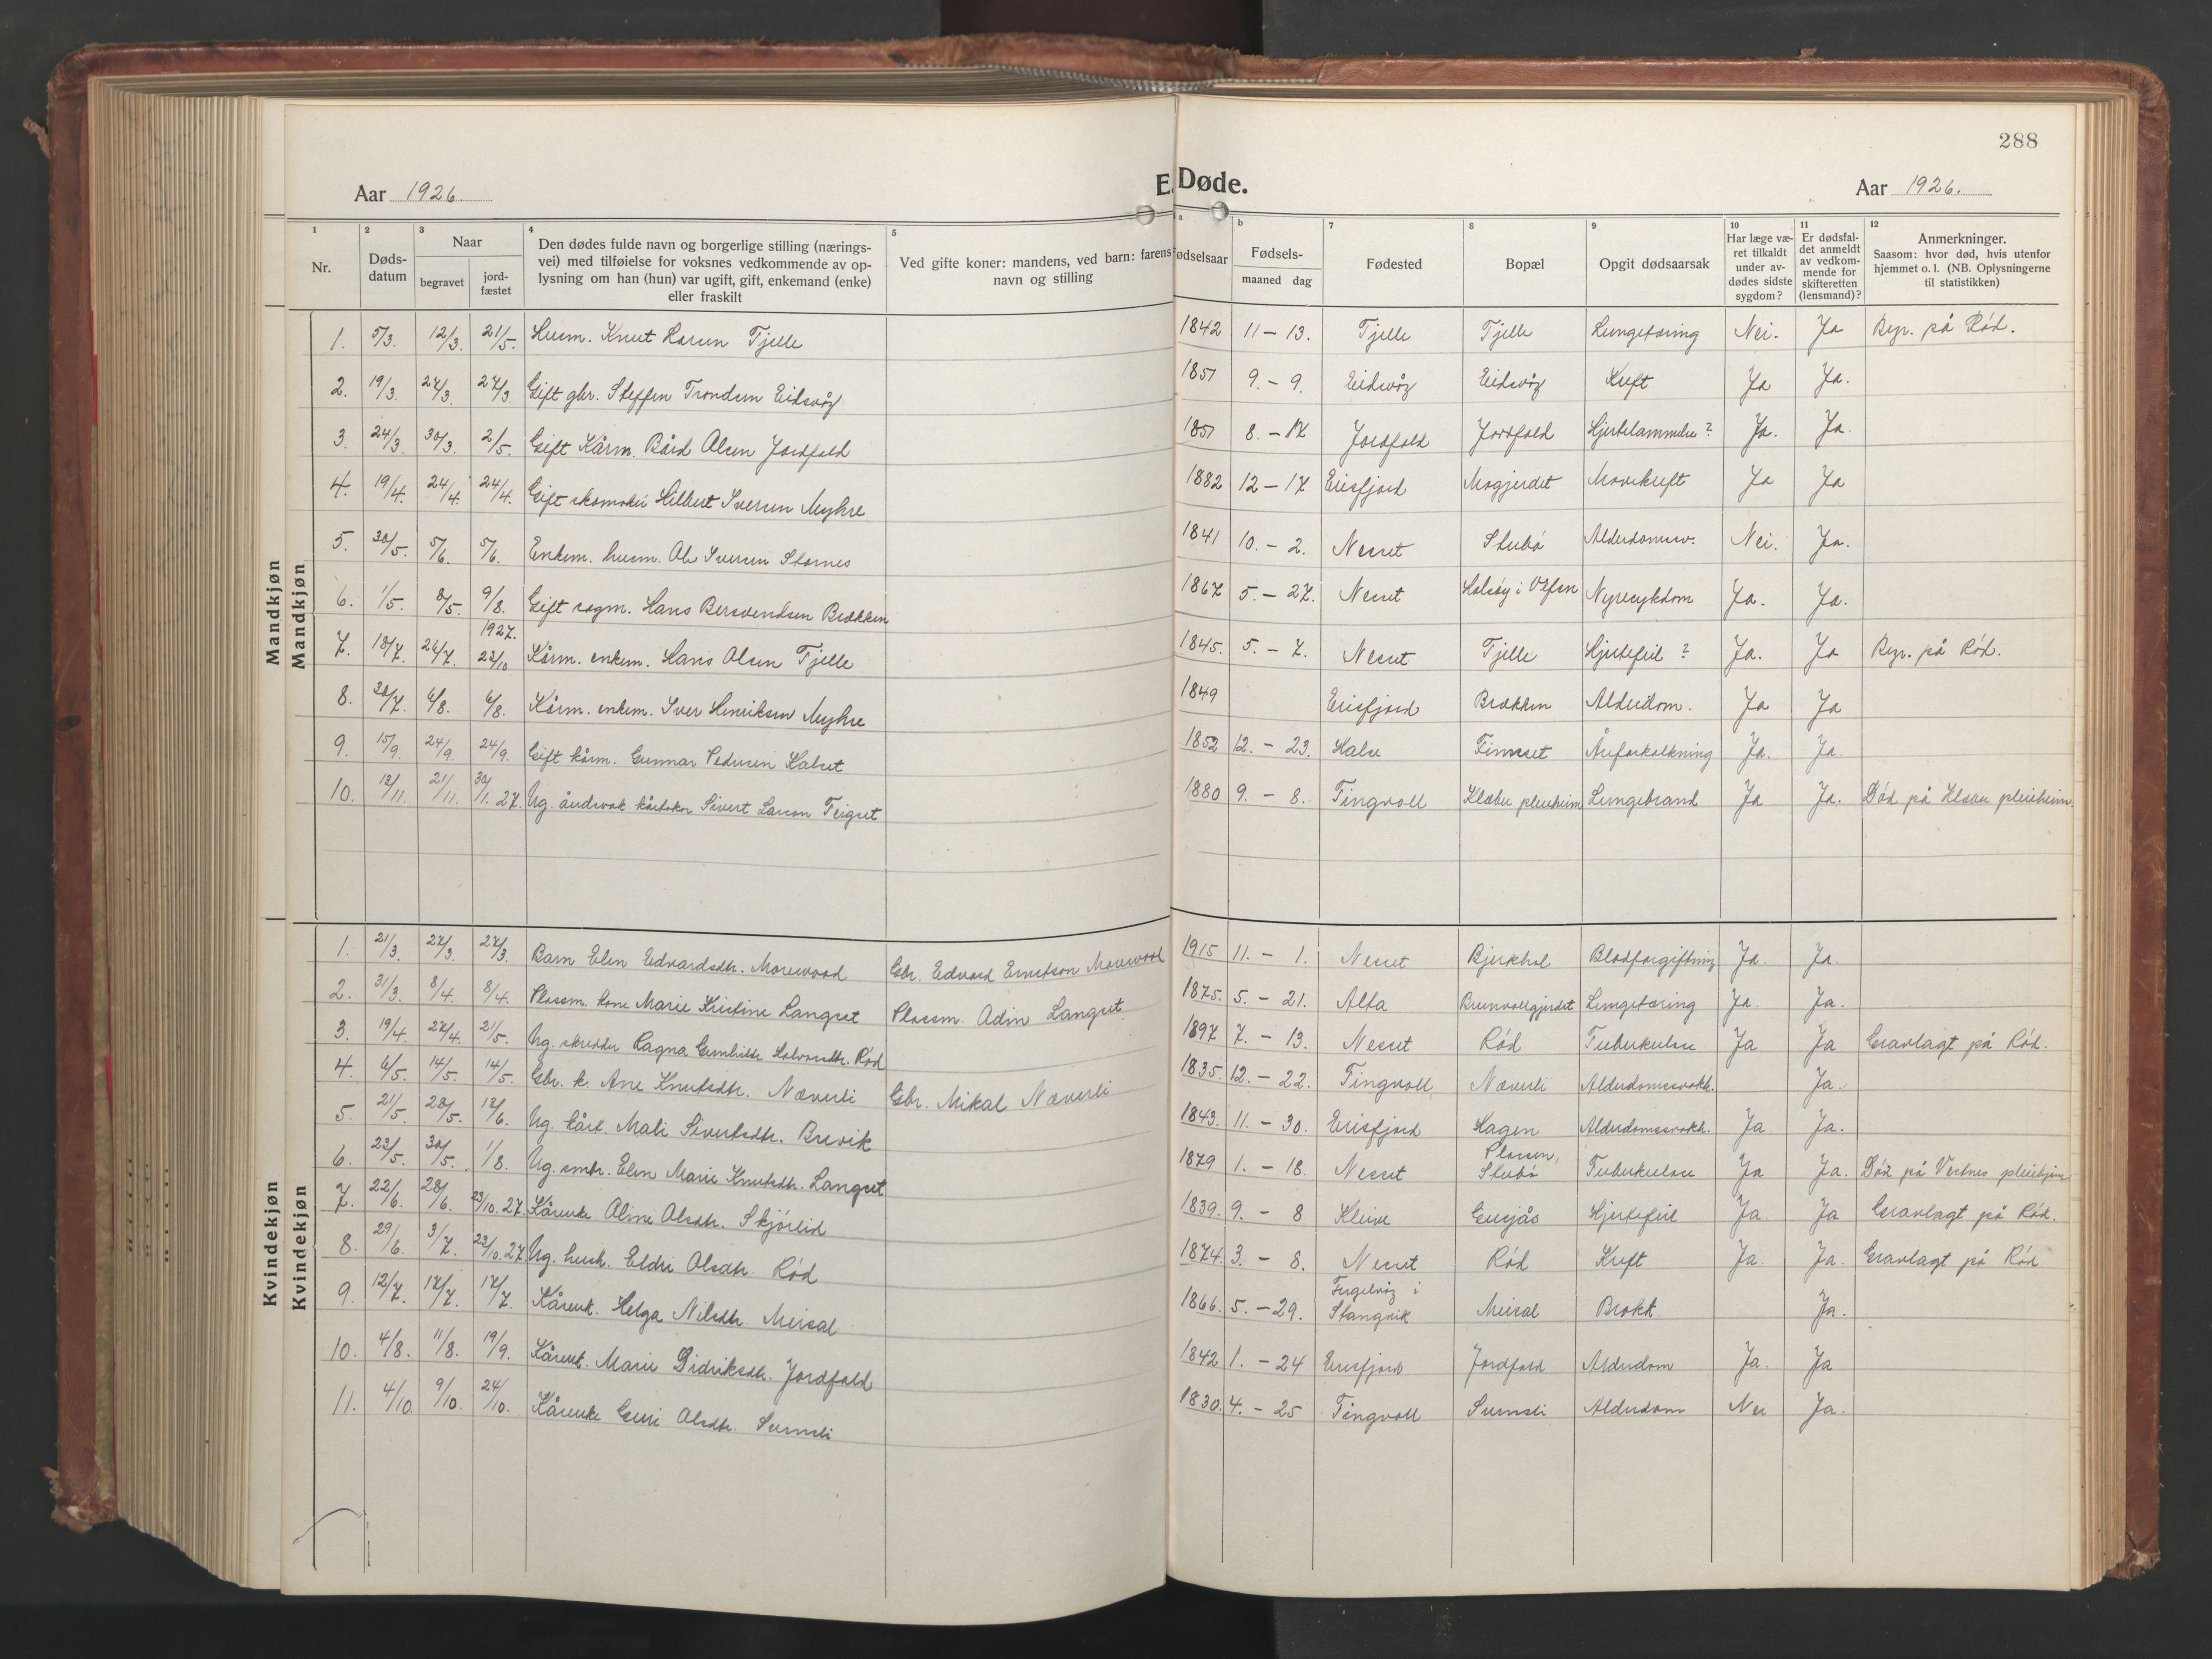 288
Aar 1926
E. Døde.
Aar 1926.
1 2 3 4 5 a b 7 8 9 10 11 12
Nr.
Døds-datum
Naar
begravet
jord-fæstet
Den dødes fulde navn og borgerlige stilling (nærings-
vei) med tilføielse for voksnes vedkommende av op-
lysning om han (hun) var ugift, gift, enkemand (enke)
eller fraskilt
Ved gifte koner: mandens, ved barn: farens
navn og stilling
Fødselsaar
Fødsels-
maaned dag
Fødested
Bopæl
Opgit dødsaarsak
Har læge væ-
ret tilkaldt
under av-
dødes sidste
sygdom?
Er dødsfal-
det anmeldt
av vedkom-
mende for
skifteretten
(lensmand)?
Anmerkninger.
Saasom: hvor død, hvis utenfor
hjemmet o. l. (NB. Oplysningerne
til statistikken)
Mandkjøn
Mandkjøn
1. 5/3. 12/3. 21/5. Husm. Knut Larsen Tjelle 1842 11 – 13. Tjelle Tjelle Lungetæring Nei. Ja Begr. på Rød.
2. 19/3. 27/3. 27/3. Gift gbr. Steffen Trondsen Eidsvåg 1851 9. – 9. Eidsvåg Eidsvåg Kreft Ja Ja.
3. 24/3. 30/3. 2/5. Gift Kårm. Bård Olsen Jordfald 1851 8. – 17 Jordfald Jordfald Hjertelammelse? Ja. Ja.
4. 19/4. 24/4. 24/4. Gift skomaker Hilbert Iversen Myhre 1882 12 – 17 Erisfjord Mogjerdet Mavekreft Ja Ja
5. 30/5. 5/6. 5/6. Enkem. husm. Ole Iversen Stornes 1841 10. – 2. Nesset Stubø Alderdomssv. Nei. Ja.
6. 1/5. 8/5. 9/8. Gift sagm. Hans Bersvendsen Brækken 1867 5. – 27. Nesset Nyresykdom Ja. Ja.
1927.
7. 18/7. 26/7. 23/10 Kårm. enkem. Hans Olsen Tjelle 1845. 5. – 7. Nesset Tjelle Hjertefeil ? Ja. Ja Begr. på Rød.
8. 30/7. 6/8. 6/8. Kårm. enkem. Iver Henriksen Myhre 1849 Erisfjord Brækken Alderdom. Ja Ja
9. 15/9. 24/9. 24/9. Gift kårm. Gunnar Pedersen Kalset 1852 12. – 23. Halse Finnset Åreforkalkning Ja. Ja.
10. 13/11. 21/11. 30/1. 27. Ug. åndssvak Sivert Larson Teigset 1880 9. – 8. Tingvoll Klæbu pleieheim Lungebrand Ja Ja. Død på Klæbu pleieheim.
Kvindekjøn
Kvindekjøn
1. 21/3. 27/3. 27/3. Barn Elen Edvardsdtr. Morewood Gbr. Edvard Ernstson Morewood 1915 11. – 1. Nesset Bjerkhol Blodforgiftning Ja. Ja.
2. 31/3. 8/4. 8/4. Plassm. kone Marie Kristine Langset Plassm. Adin Langset 1875. 5. – 21. Alta Brunvollgjerdet Lungetæring Ja. Ja.
3. 19/4. 27/4. 21/5. Ug. Ragna Gunhilde Halvorsdtr. Rød 1897 7. – 13. Nesset Rød Tuberkulose Ja Ja Gravlagt på Rød.
4. 6/5. 14/5. 14/5. Gbr. k. Ane Knutsdtr. Næverli Gbr. Mikal Næverli 1835. 12. – 22. Tingvoll Næverli Alderdomssvakh. Ja.
5. 21/5. 28/5. 13/6. Ug. Mali Sivertsdtr. Brevik 1843. 11. – 30. Erisfjord Hagen Alderdomssvakh. Ja Ja.
6. 23/5. 30/5. 1/8. Ug. Elen Marie Knutsdtr. Langset 1879 1. – 18. Nesset Plassen, Stubø Tuberkulose Ja Ja. Død på Vestnes pleiehjem
7. 22/6. 28/6. 23/10. 27. Kårenke Aline Olsdtr. Skjørlid 1839. 9. – 8 Kleive Gusjås Hjertefeil Ja. Ja Gravlagt på Rød.
8. 29/6. 3/7. 23/10. 27. Ug. hush. Eldri Olsdtr. Rød 1874. 3. – 8. Nesset Rød Kreft Ja. Ja. Gravlagt på Rød
9. 12/7. 17/7. 17/7. Kårenk. Helga Nilsdtr. Meisal 1866. 5. – 29. Fugelvåg i Stangvik Meisal Brokk Ja.
10. 4/8. 11/8. 19/9. Kårenk. Marie Didriksdtr. Jordfald 1842 1. – 24 Erisfjord Jordfald Alderdom Ja. Ja
11. 4/10. 9/10. 24/10. Kårenke Guri Olsdtr. Sumsli 1830. 4. – 25 Tingvoll Sumsli Alderdom Nei Ja.